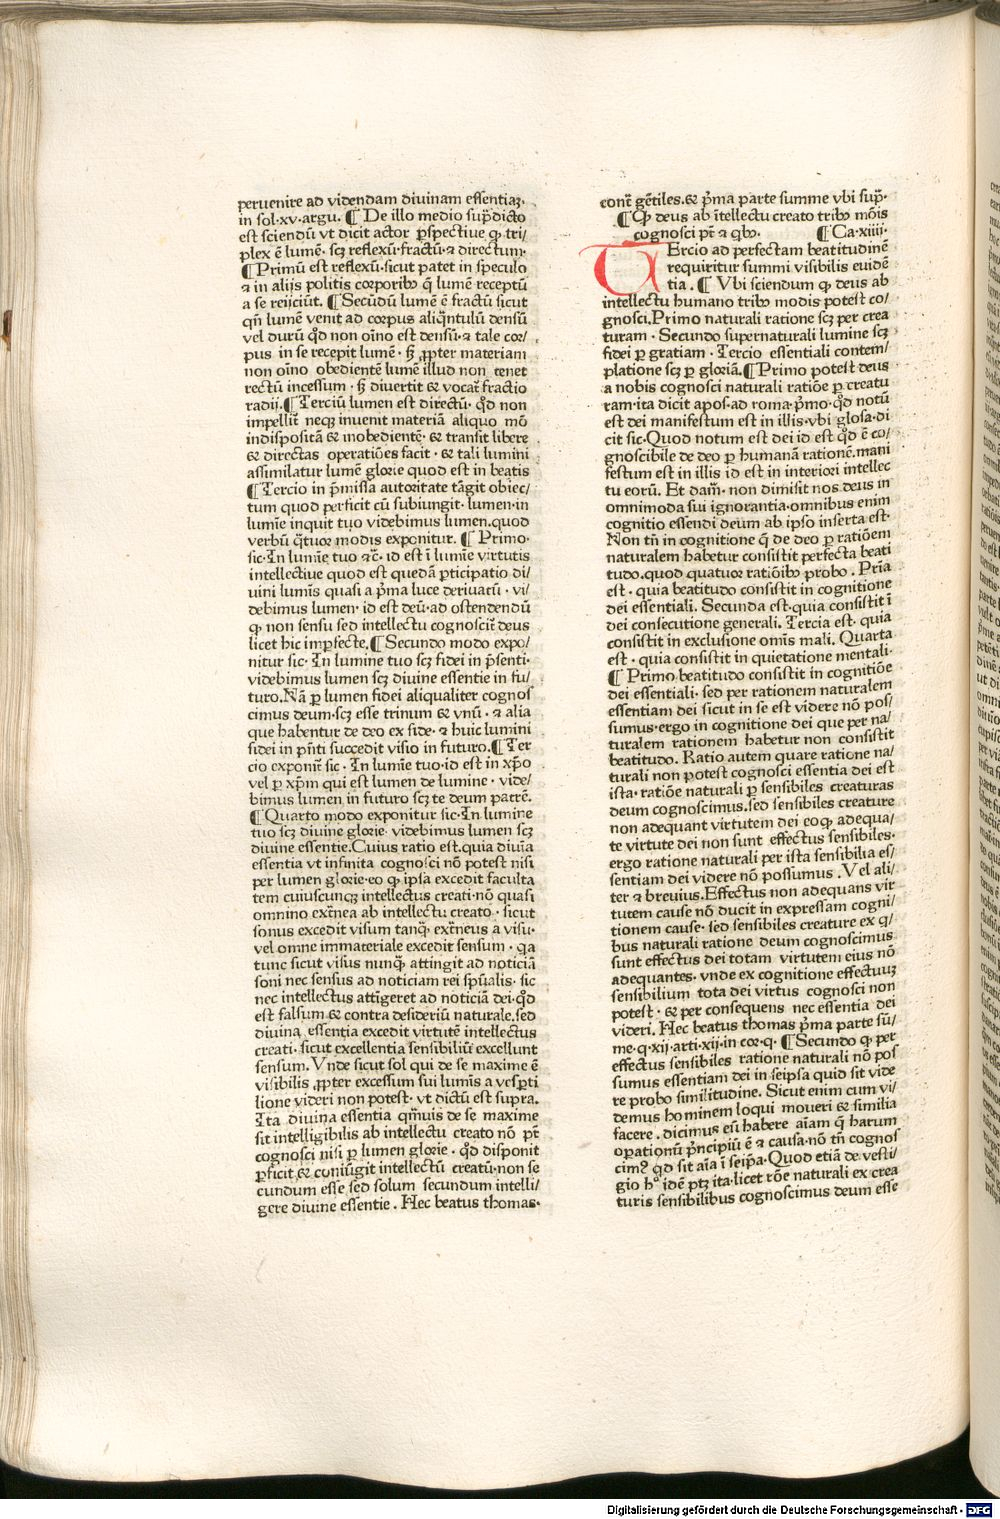 peruenire ad videndam diuinam essentiaꝫ.
in sol.xv.argu. ¶ De illo medio sup̄dicto
est sciendū vt dicit actor ꝑspectiue ꝙ tri/
plex ē lumē. scꝫ reflexū.fractū.⁊ directum.
¶ Primū est reflexū.sicut patet in speculo
⁊ in alijs politis corporibꝰ q̄ lumē receptū
a se reijciūt. ¶ Secūdū lumē ē fractū sicut
qn̄ lumē venit ad corpus aliqͣntulū densū
vel durū qd̓ non oīno est densū.⁊ tale cor/
pus in se recepit lumē. sꝫ ꝓpter materiam
non oīno obedientē lumē illud non tenet
rectū incessum . sꝫ diuertit ⁊ vocat̄ fractio
radij. ¶ Terciū lumen est directū. qd̓ non
impellit̄ neqꝫ inuenit materiā aliquo mō
indispositā ⁊ inobedientē. ⁊ transit libere
⁊ directas operatiōes facit . ⁊ tali lumini
assimilatur lumē glorie quod est in beatis
¶ Tercio in p̄missa autoritate tāgit obiec/
tum quod perficit cū subiungit. lumen.in
lumīe inquit tuo videbimus lumen.quod
verbū qͣtuor modis exponitur. ¶ Primo
sic.In lumīe tuo ⁊c̄. id est ī lumīe virtutis
intellectiue quod est quedā ꝑticipatio di/
uini lumīs quasi a p̄ma luce deriuatū . vi/
debimus lumen. id est deū.ad ostendendū
ꝙ non sensu sed intellectu cognoscit̄ deus
licet hic imꝑfecte. ¶ Secundo modo expo/
nitur sic. In lumine tuo scꝫ fidei in p̄senti.
videbimus lumen scꝫ diuine essentie in fu/
turo.Nā ꝑ lumen fidei aliqualiter cognos
cimus deum.scꝫ esse trinum ⁊ vnū . ⁊ alia
que habentur de deo ex fide. ⁊ huic lumini
fidei in p̄nti succedit visio in futuro. ¶ Ter
cio exponit̄ sic . In lumīe tuo.id est in xp̄o
vel ꝑ xp̄m qui est lumen de lumine . vide/
bimus lumen in futuro scꝫ te deum patrē.
¶ Quarto modo exponitur sic.In lumine
tuo scꝫ diuine glorie. videbimus lumen scꝫ
diuine essentie.Cuius ratio est.quia diuīa
essentia vt infinita cognosci nō potest nisi
per lumen glorie.eo ꝙ ipsa excedit faculta
tem cuiuscunqꝫ intellectus creati.nō quasi
omnino extͣnea ab intellectu creato . sicut
sonus excedit visum tanqͣ extͣneus a visu.
vel omne immateriale excedit sensum . qa
tunc sicut visus nunqͣ attingit ad noticiā
soni nec sensus ad noticiam rei spūalis. sic
nec intellectus attigeret ad noticiā dei.qd̓
est falsum ⁊ contra desideriū naturale.sed
diuina essentia excedit virtutē intellectus
creati. sicut excellentia sensibiliū excellunt
sensum. Vnde sicut sol qui de se maxime ē
visibilis ꝓpter excessum sui lumīs a vesꝑti
lione videri non potest. vt dictū est supra.
Ita diuina essentia qͣmuis de se maxime
sit intelligibilis ab intellectu creato nō pt̄
cognosci nisi ꝑ lumen glorie . qd̓ disponit
ꝑficit ⁊ coniūgit intellectū creatū.non se
cundum esse sed solum secundum intelli/
gere diuine essentie . Hec beatus thomas.
cont̄ gētiles.⁊ p̄ma parte summe vbi sup̄.
¶ Ꝙ deus ab ītellectu creato tribꝰ mōis
cognosci pt̄ ⁊ qbꝰ. ¶ Ca.xiiij.
TErcio ad perfectam beatitudinē
requiritur summi visibilis euidē
tia . ¶ Vbi sciendum ꝙ deus ab
intellectu humano tribꝰ modis potest co/
gnosci.Primo naturali ratione scꝫ per crea
turam . Secundo supernaturali lumine scꝫ
fidei ꝑ gratiam . Tercio essentiali contem/
platione scꝫ ꝑ gloriā. ¶ Primo potest deus
a nobis cognosci naturali ratiōe ꝑ creatu
ram.ita dicit apos.ad roma.p̄mo.qd̓ notū
est dei manifestum est in illis.vbi glosa.di
cit sic.Quod notum est dei id est qd̓ ē co/
gnoscibile de deo ꝑ humanā rationē.mani
festum est in illis id est in interiori intellec
tu eorū. Et dam̄. non dimisit nos deus in
omnimoda sui ignorantia.omnibus enim
cognitio essendi deum ab ipso inserta est.
Non tn̄ in cognitione q̄ de deo ꝑ ratiōem
naturalem habetur consistit perfecta beati
tudo.quod quatuor ratiōibꝰ probo . Prīa
est . quia beatitudo consistit in cognitione
dei essentiali. Secunda est.quia consistit ī
dei consecutione generali. Tercia est. quia
consistit in exclusione omīs mali. Quarta
est . quia consistit in quietatione mentali.
¶ Primo beatitudo consistit in cognitiōe
dei essentiali. sed per rationem naturalem
essentiam dei sicut in se est videre nō pos/
sumus.ergo in cognitione dei que per na/
turalem rationem habetur non consistit
beatitudo. Ratio autem quare ratione na/
turali non potest cognosci essentia dei est
ista. ratiōe naturali ꝑ sensibiles creaturas
deum cognoscimus.sed sensibiles creature
non adequant virtutem dei eoqꝫ adequa/
te virtute dei non sunt effectus sensibiles.
ergo ratione naturali per ista sensibilia es/
sentiam dei videre nō possumus .Vel ali/
ter ⁊ breuius.Effectus non adequans vir
tutem cause nō ducit in expressam cogni/
tionem cause. sed sensibiles creature ex q/
bus naturali ratione deum cognoscimus
sunt effectus dei totam virtutem eius nō
adequantes. vnde ex cognitione effectuuꝫ
sensibilium tota dei virtus cognosci non
potest . ⁊ per consequens nec essentia dei
videri. Hec beatus thomas p̄ma parte sū/
me.q.xij.arti.xij.in cor.q. ¶ Secundo ꝙ per
effectus sensibiles ratione naturali nō pos
sumus essentiam dei in seipsa quid sit vide
re probo similitudine. Sicut enim cum vi/
demus hominem loqui moueri ⁊ similia
facere . dicimus eū habere aīam q̄ harum
oꝑationū p̄ncipiū ē ⁊ causa.nō tn̄ cognos
cimꝰ qd sit aīa ī seip̄a.Quod etiā de vesti/
gio hͦ idē ptꝫ ita.licet rōe naturali ex crea
turis sensibilibus cognoscimus deum esse
Digitalisierung gefördert durch die Deutsche Forschungsgemeinschaft - DFG